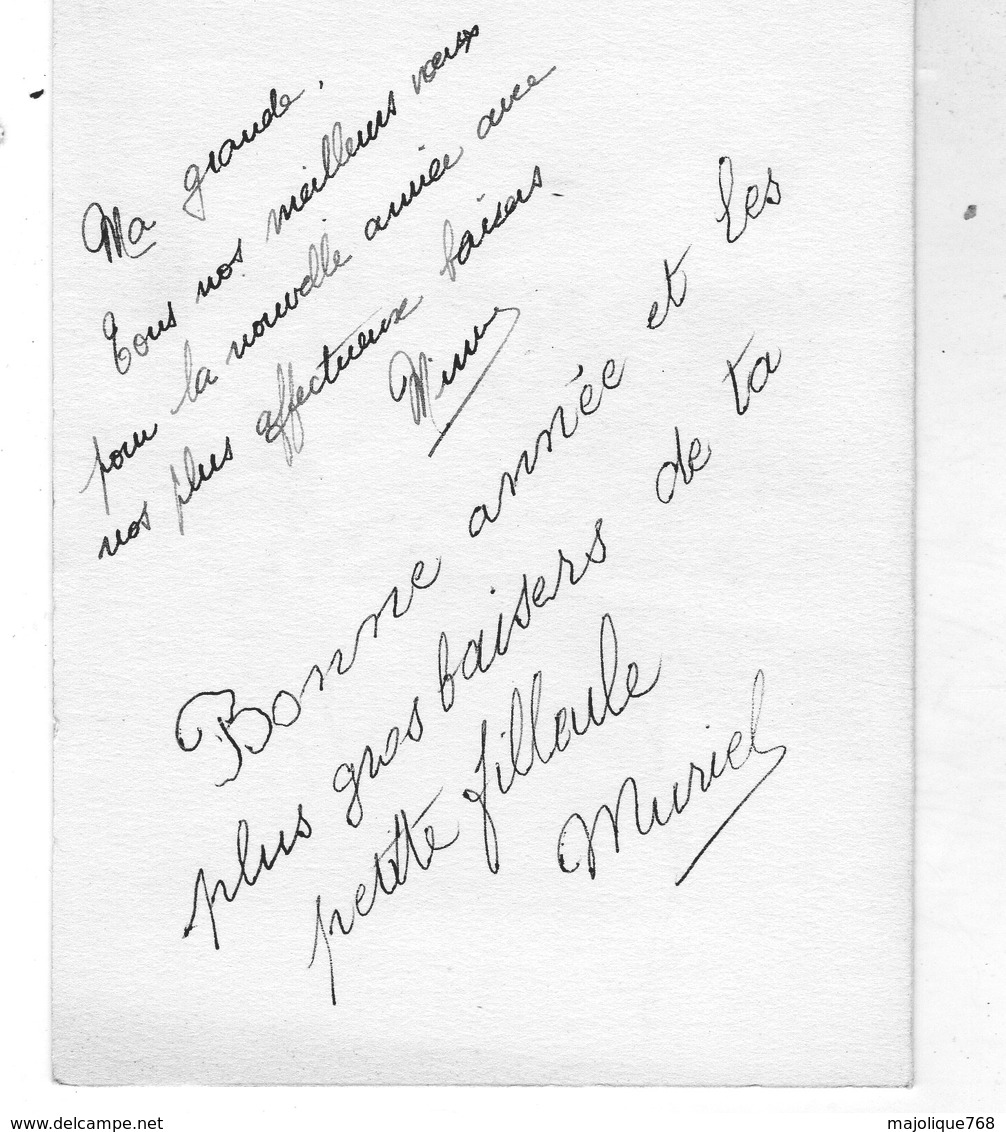 Ma grande,
Tous nos meilleurs vœux
pour la nouvelle année avec
nos plus affectueux baisers.
Bonne année et les
plus gros baisers de ta
petite filloule
Muriel
www.delcampe.net
majolique768